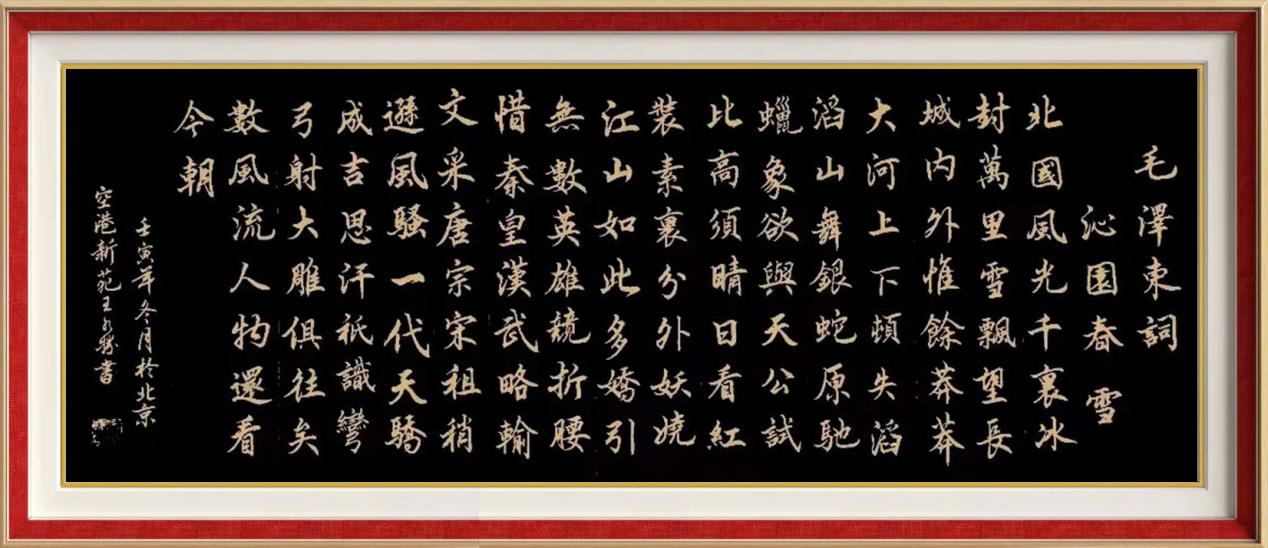 毛澤東詞
沁園春 雪
北國風光千裏冰
封萬里雪飄望長
城内外惟餘莽莽
大河上下頓失滔
滔山舞銀蛇原馳
蠟象欲與天公試
比高須晴日看紅
裝素裹分外妖嬈
江山如此多嬌引
無數英雄競折腰
惜秦皇漢武略輸
文采唐宗宋祖稍
遜風騷一代天驕
成吉思汗祇識彎
弓射大雕俱往矣
數風流人物還看
今朝
壬寅年冬月於北京
空港新苑王書